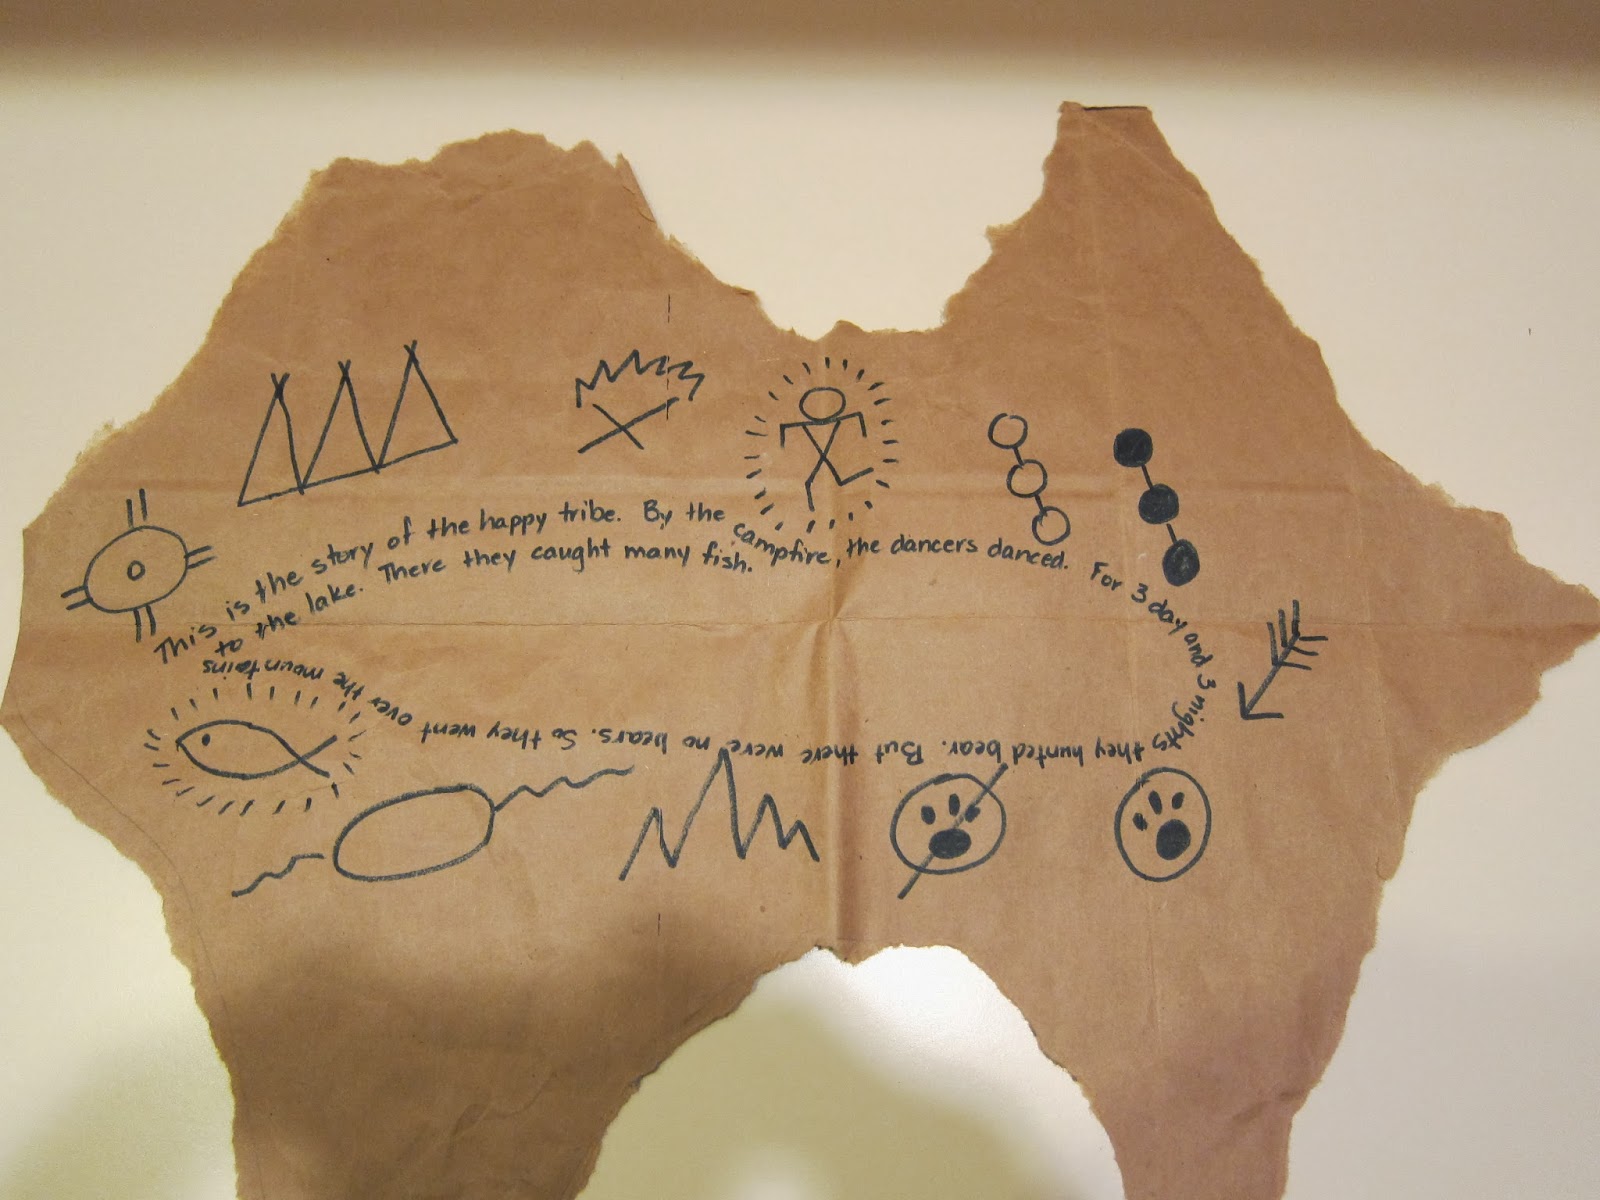 This is the story of the happy tribe. By the campfire, the dancers danced. For 3 day and 3 nights they hunted bear. But there were no bears. So they went over the mountains
at the lake. There they caught many fish.